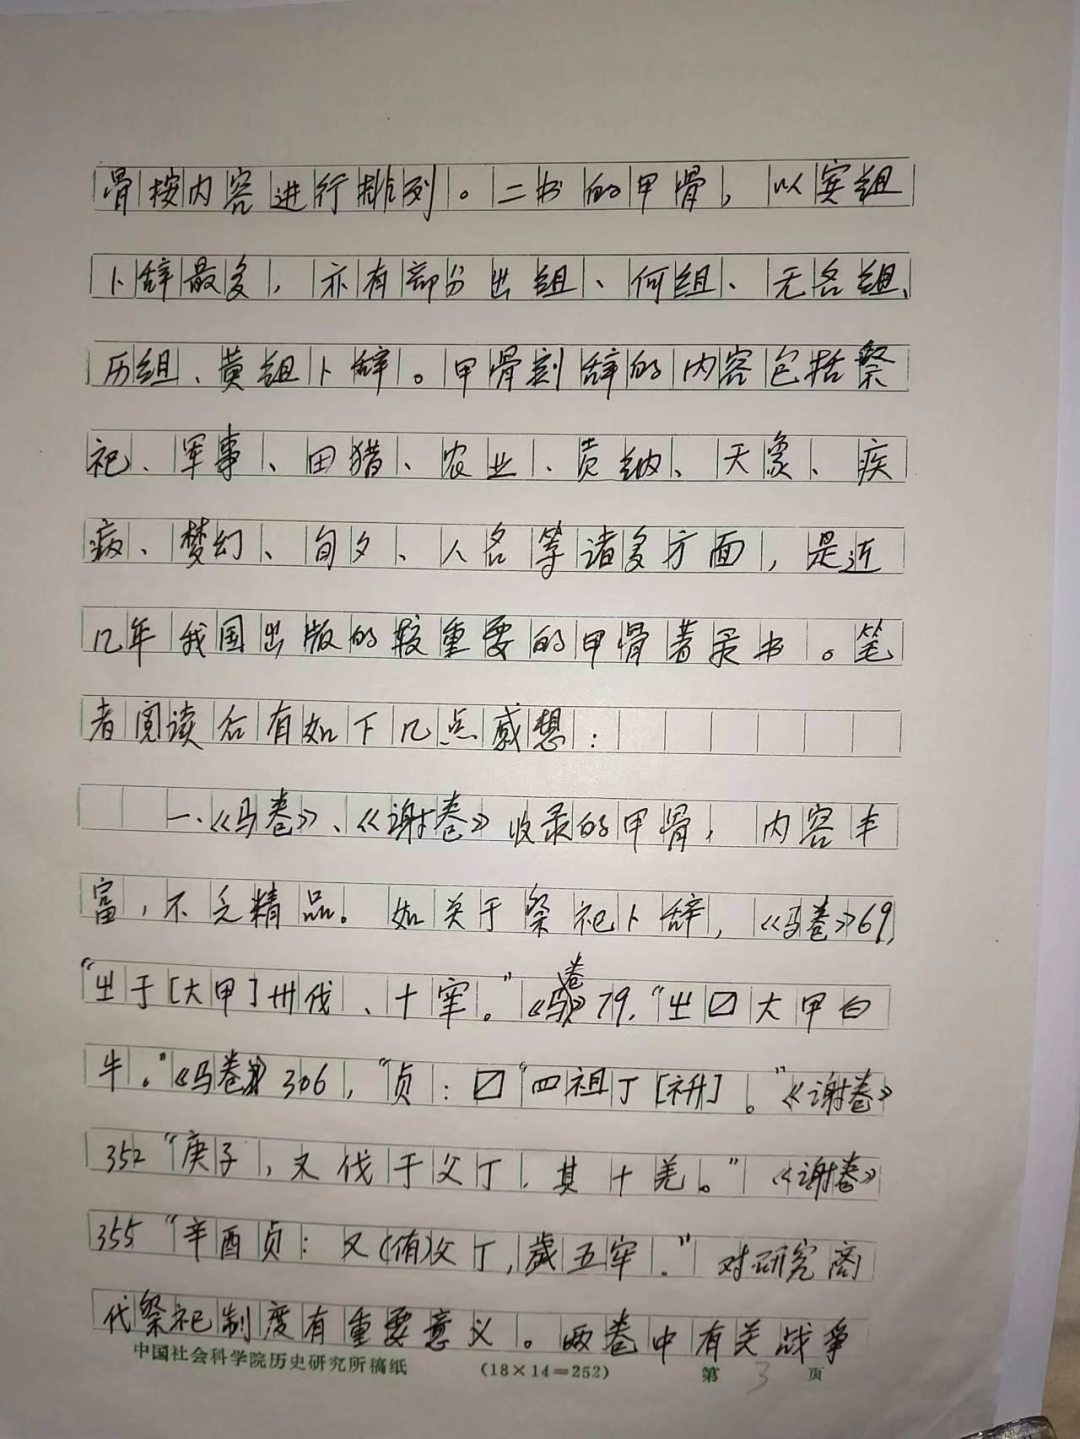 骨按内容进行排列。二书的甲骨，以宾组
卜辞最多，亦有部分出组、何组、无名组、
历组、黄组卜辞。甲骨刻辞的内容包括祭
祀、军事、田猎、农业、贡纳、天象、疾
病、梦幻、旬夕、人名等诸多方面，是近
几年我国出版的较重要的甲骨著录书。笔
者阅读后有如下几点感想：
一、《马卷》、《谢卷》收录的甲骨，内容丰
富，不乏精品。如关于祭祀卜辞，《马卷》69，
“㞢于[大甲]卅伐、十宰。”《马卷》79，“㞢☑大甲白
牛。”《马卷》306，“贞：☑“四祖丁[礿]。”《谢卷》
352“庚子，又伐于父丁，其十羌。”《谢卷》
355“辛酉贞：又(侑)父丁，歲五牢。”对研究商
代祭祀制度有重要意义。两卷中有关战争
中国社会科学院历史研究所稿纸 (18×14=252) 第3页